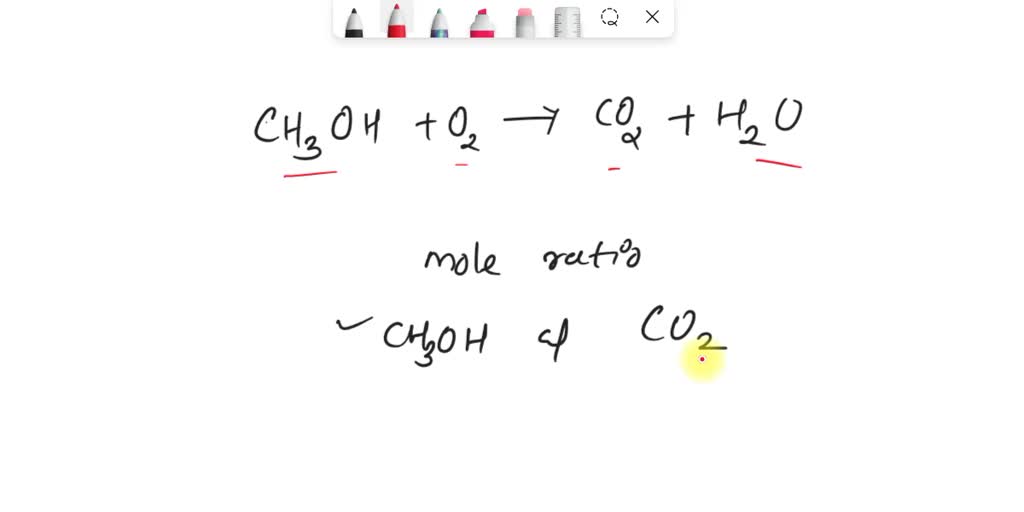 CH₃OH + O₂ → CO₂ + H₂O
mole ratio
✓ CH₃OH & CO₂